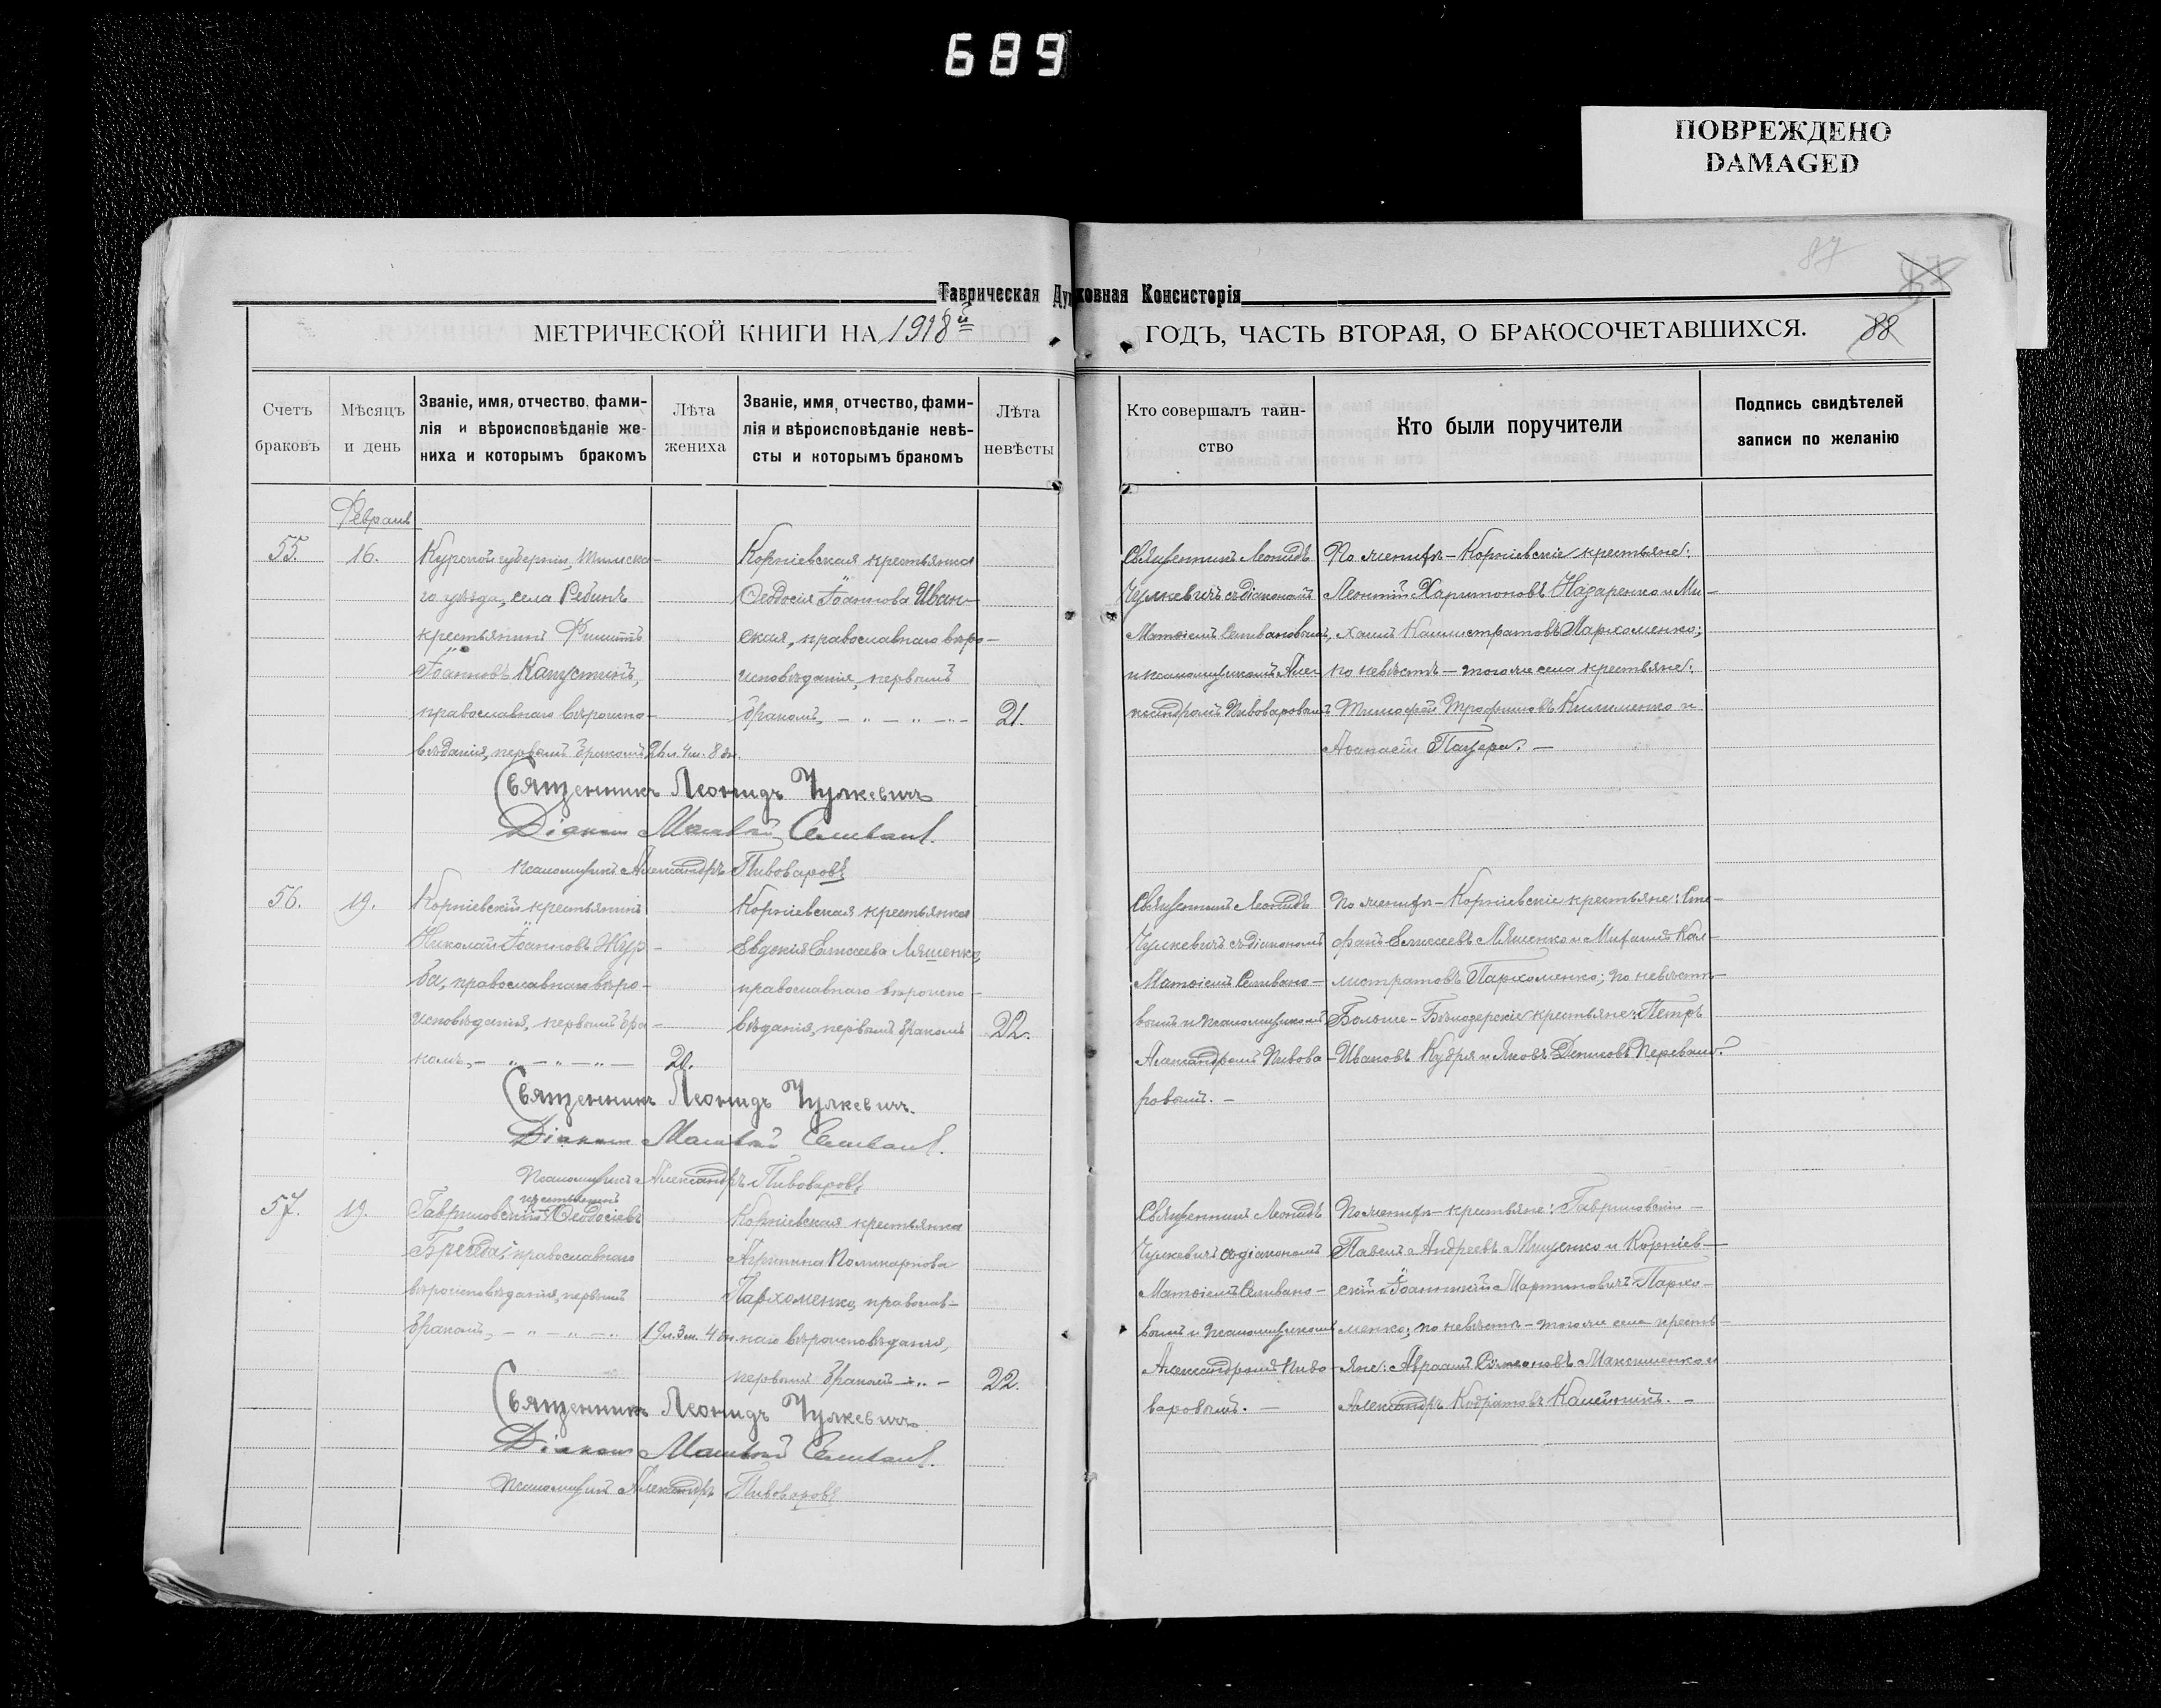 689
ПОВРЕЖДЕНО
DAMAGED
87
Таврическая Духовная Консисторія
МЕТРИЧЕСКОЙ КНИГИ НА 1918й
ГОДЪ, ЧАСТЬ ВТОРАЯ, О БРАКОСОЧЕТАВШИХСЯ.
88
Счетъ браковъ
Мѣсяцъ и день
Званіе, имя, отчество, фами-
лія и вѣроисповѣданіе же-
ниха и которымъ бракомъ
Лѣта жениха
Званіе, имя, отчество, фами-
лія и вѣроисповѣданіе невѣ-
сты и которымъ бракомъ
Лѣта невѣсты
Кто совершалъ таин-
ство
Кто были поручители
Подпись свидѣтелей
записи по желанію
Февраль
55.
16.
Курской губерніи, Тимска-
го уѣзда, села
крестьянинъ Филиппъ
Іоанновъ Капустинъ,
православнаго вѣроиспо-
вѣданія, первымъ бракомъ
21 л. 4 м. 8 дн.
Корніевская крестьянка
Ѳеодосія Іоаннова Иван-
ская, православнаго вѣро-
исповѣданія, первымъ
бракомъ, - " - " - " -
21.
Священникъ Леонидъ
Чулкевичъ съ діакономъ
Матѳіемъ Селивановымъ
и псаломщикомъ Алек
сандромъ Пивоваровымъ
По женихѣ - Корніевскіе крестьяне:
Леонтій Харитоновъ Назаренко и Ми-
хаилъ Каллистратовъ Пархоменко;
по невѣстѣ - того же села крестьяне:
Тимофей Трофимовъ Клименко и
Аѳанасій Пащера. -
Священникъ Леонидъ Чулкевичъ
Діаконъ Матвѣй Селивановъ.
Псаломщикъ Александръ Пивоваровъ
56.
19.
Корніевскій крестьянинъ
Николай Іоанновъ Жур-
ба, православнаго вѣро-
исповѣданія, первымъ бра-
комъ, - " - " - " -
20.
Корніевская крестьянка
Евдокія Елисеева Ляшенко,
православнаго вѣроиспо-
вѣданія, первымъ бракомъ
22.
Священникъ Леонидъ
Чулкевичъ съ діакономъ
Матѳіемъ Селивано-
вымъ и псаломщикомъ
Александромъ Пивова-
ровымъ. -
По женихѣ - Корніевскіе крестьяне: Сте-
фанъ Елисеевъ Ляшенко и Михаилъ Кал-
листратовъ Пархоменко; по невѣстѣ -
Больше-Бѣлозерскіе крестьяне: Петръ
Ивановъ Кудря и Яковъ Денисовъ
Священникъ Леонидъ Чулкевичъ.
Діаконъ Матвѣй Селивановъ.
Псаломщикъ Александръ Пивоваровъ
57.
19.
крестьянинъ
Гавриловскій Ѳеодосіевъ
православнаго
вѣроисповѣданія, первымъ
бракомъ, - " - " - .
19 л. 3 м. 4 дн.
Корніевская крестьянка
Агрипина Поликарпова
Пархоменко, православ-
наго вѣроисповѣданія,
первымъ бракомъ - " -
22.
Священникъ Леонидъ
Чулкевичъ съ діакономъ
Матѳіемъ Селивано-
вымъ и псаломщикомъ
Александромъ Пиво-
варовымъ. -
По женихѣ - крестьяне: Гавриловскій -
Павелъ Андреевъ Мищенко и Корніев-
скій Іоанникій Мартиновичъ Пархо-
менко; по невѣстѣ - того же села кресть-
яне: Авраамъ Симеоновъ Максименко и
Александръ Кодратовъ
Священникъ Леонидъ Чулкевичъ
Діаконъ Матвѣй Селивановъ.
Псаломщикъ Александръ Пивоваровъ